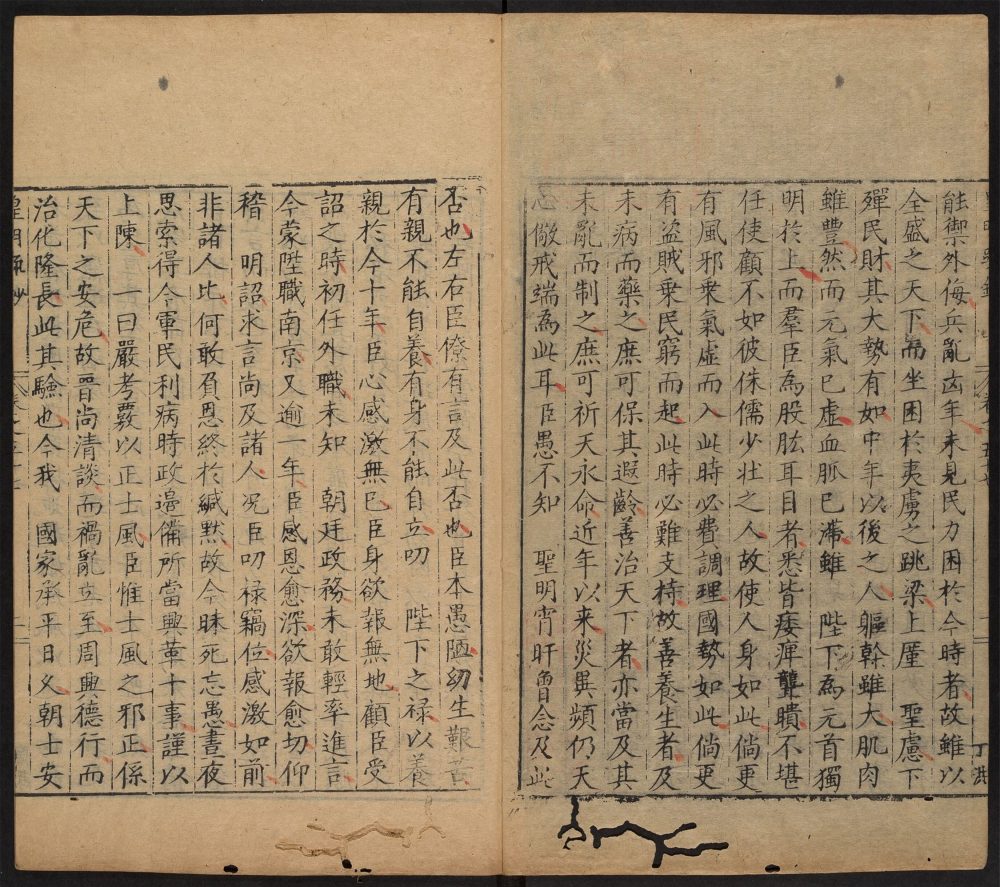 能禦外侮兵亂凶年未見民力困於今時者故雖以
全盛之天下而坐困於夷虜之跳梁上厪　聖慮下
殫民財其大勢有如中年以後之人軀幹雖大肌肉
雖豐然而元氣已虛血脈已滯雖　陛下為元首獨
明於上而羣臣為股肱耳目者悉皆痿痺聾聵不堪
任使顧不如彼侏儒少壯之人故使人身如此倘更
有風邪乗氣虛而入此時必費調理國勢如此倘更
有盜賊乗民窮而起此時必難支持故善養生者及
未病而藥之庶可保其遐齡善治天下者亦當及其
未亂而制之庶可祈天永命近年以来災異頻仍天
心儆戒端為此耳臣愚不知　聖明宵旰曾念及此
否也左右臣僚有言及此否也臣本愚陋幼生艱黃
有親不能自養有身不能自立叨　陛下之禄以養
親於今十年臣心感激無已臣身欲報無地顧臣受
詔之時初任外職未知　朝廷政務未敢輕率進言
今蒙陞職南京又逾一年臣感恩愈深欲報愈切仰
稽　明詔求言尚及諸人况臣叨禄竊位感激如前
非諸人比何敢負恩終於緘默故今昧死忘愚晝夜
思索得今軍民利病時政邊備所當興革十事謹以
上陳　一曰嚴考覈以正士風臣惟士風之邪正係
天下之安危故晉尚清談而禍亂立至周興德行而
治化隆長此其驗也今我　國家承平日久朝士安
皇明疏鈔